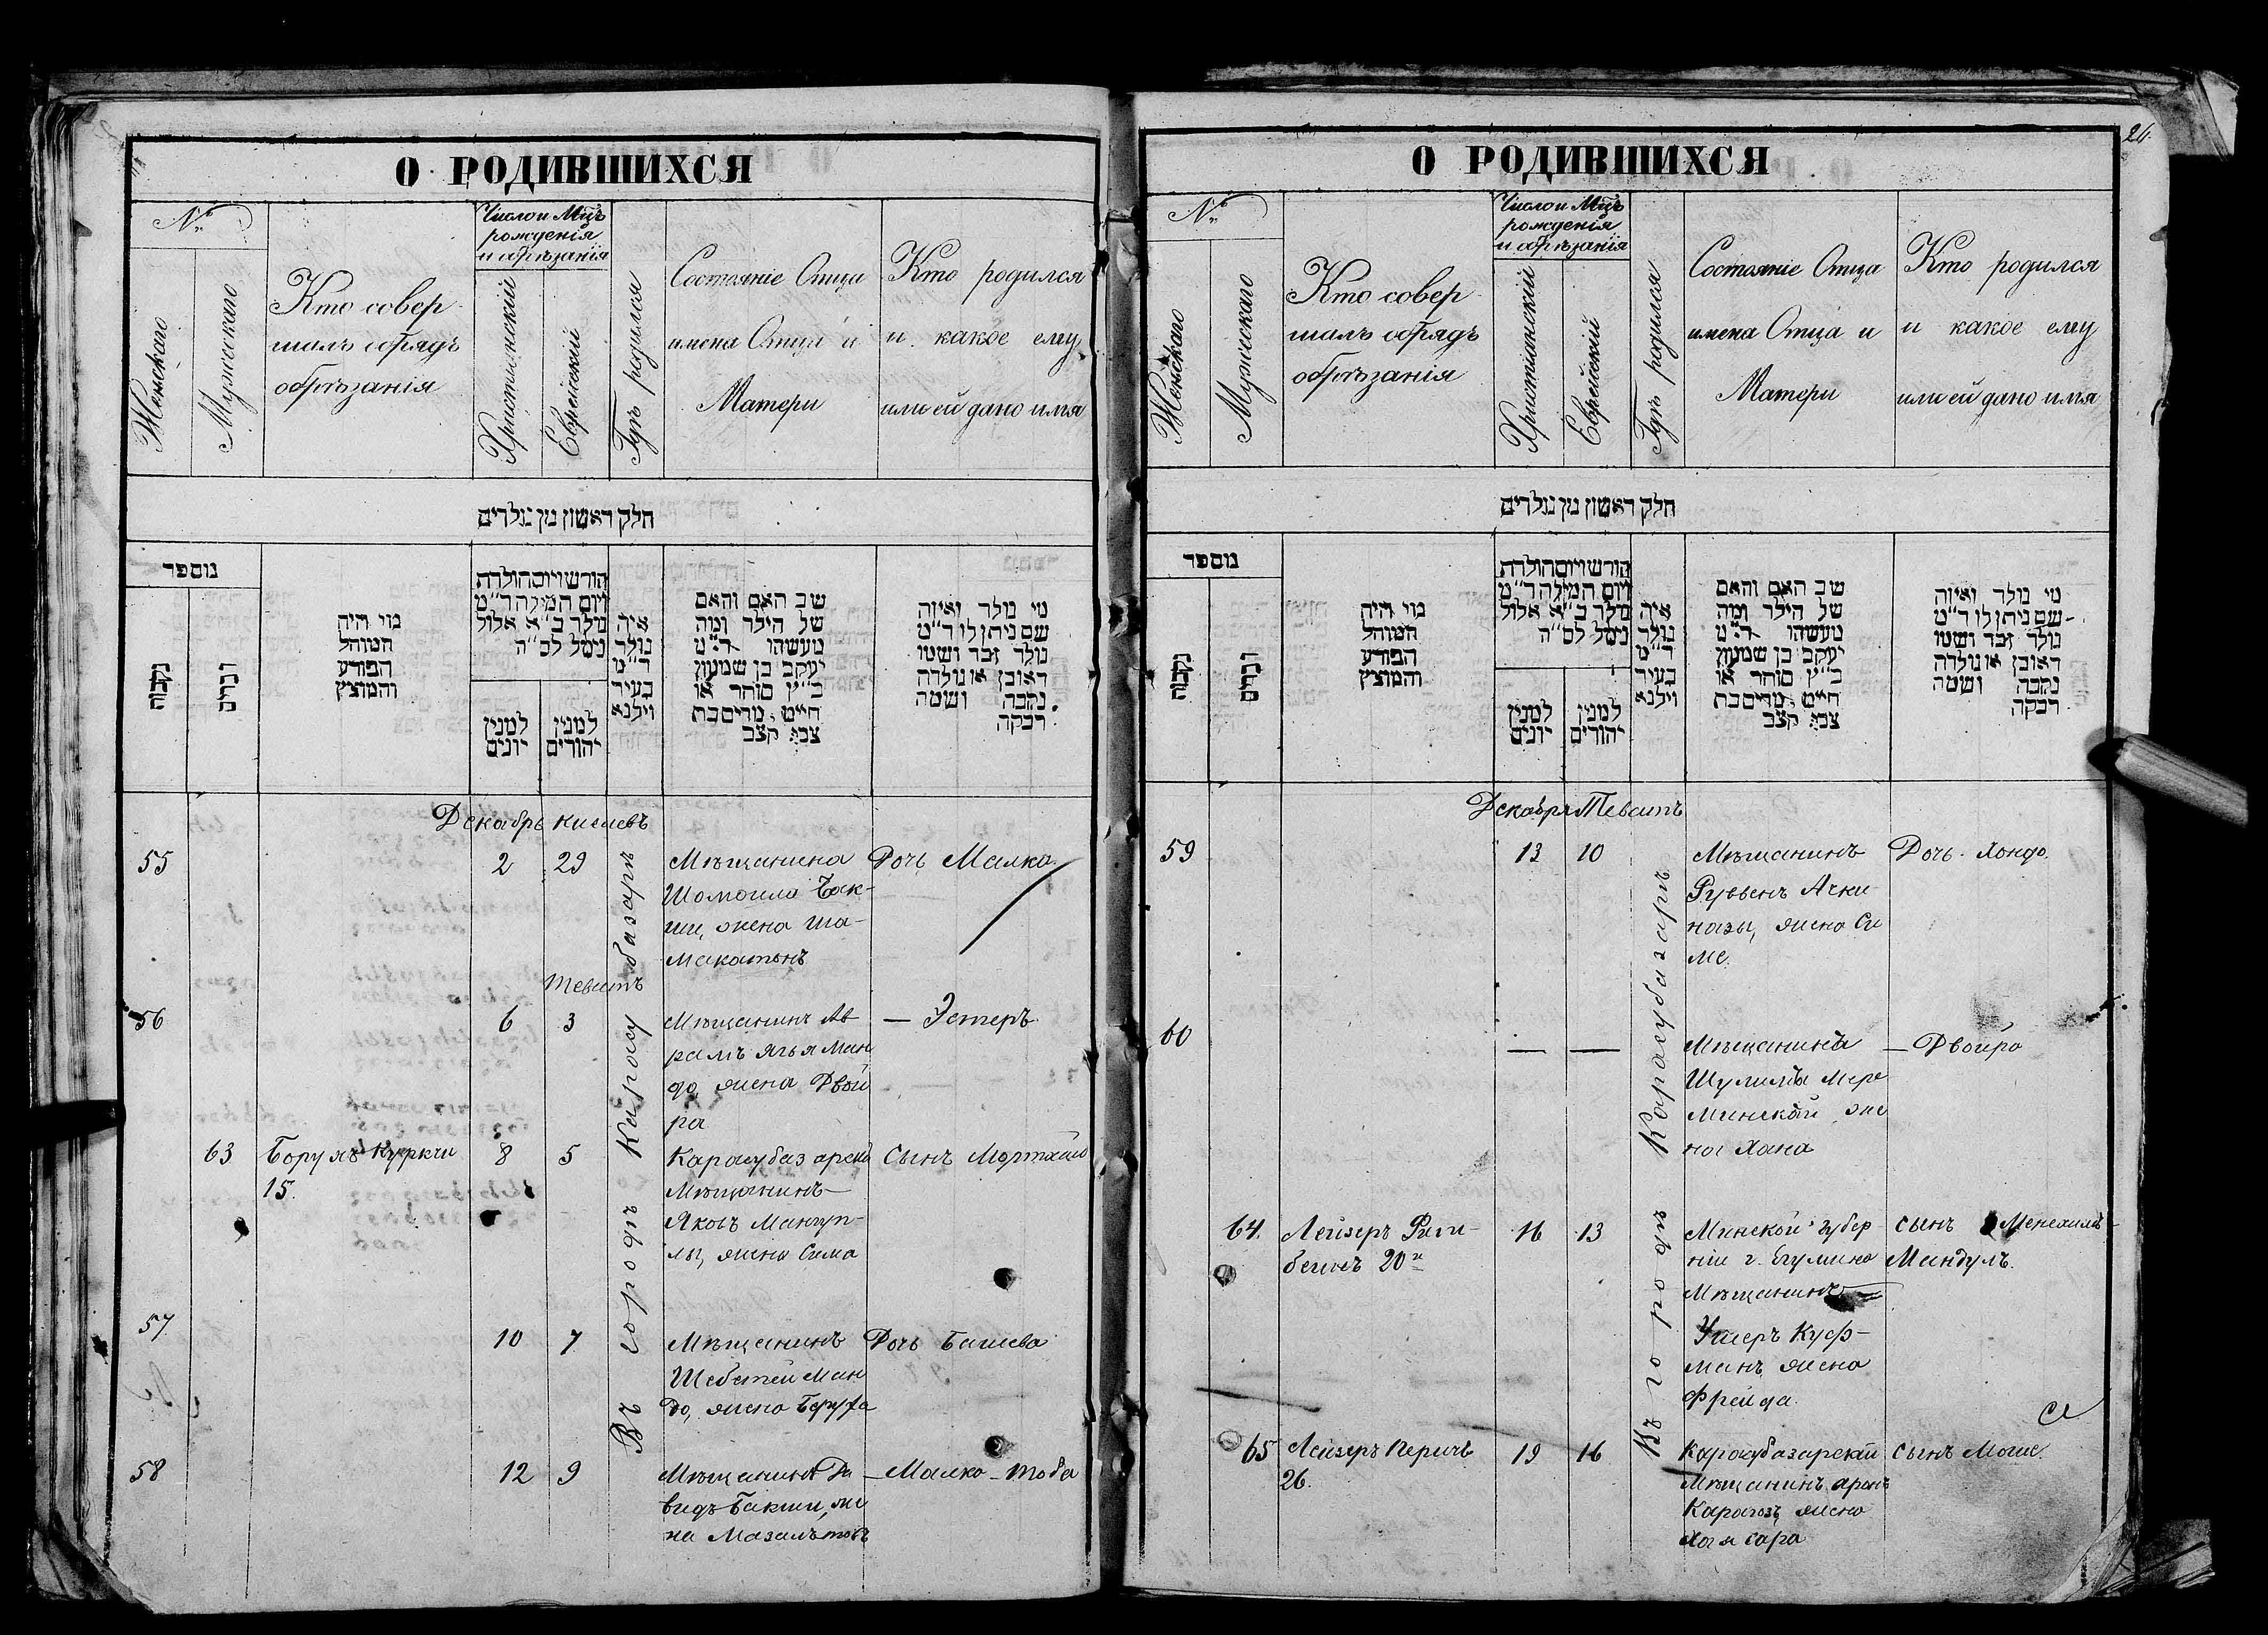 О РОДИВШИХСЯ
№
Женскаго
Мужескаго
Кто совер-
шалъ обрядъ
обрѣзанія
Число и Мцъ
рожденія
и обрѣзанія
Христіанскій
Еврейскій
Гдѣ родился
Состояніе Отца
имена Отца и
Матери
Кто родился
и какое ему
или ей дано имя
חלק ראשון מן נולדים
מספר
נקבות
זכרים
מי היה
המוהל
הפורע
והמוצץ
חודש ויום הולדת
ויום המילה ד״מ
נולד ב״א אלול
נימל לס״ה
למנין
יונים
למנין
יהודים
איה
נולד
ד״מ
בעיר
וילנא
שב האם והאם
של הילד ומה
מעשהו ד״מ
יעקב בן שמעון
כ״ץ סוחר או
חייט מרים בת
צבי קצב
מי נולד ואיזה
שם ניתן לו ד״מ
נולד זכר ושמו
ראובן או נולדה
נקבה ושמה
רבקה
Декабрь Кислевъ
Въ городѣ Карасубазарѣ
55
2 29
Мѣщанина
Шомоила Бак-
ши, жена Ша-
Макатонъ
Дочь Малка
Теватъ
56
6 3
Мѣщанинъ Ав
рамъ Ягья Ман
до, жена Двой
ра
— Эстеръ
63
Борухъ Куркчи
15.
8 5
Карасубазарскій
Мѣщанинъ
Яковъ Мангуп-
лы, жена Сима
Сынъ Мортхай
57
10 7
Мѣщанинъ
Шебетей Ман
до, жена Беруха
Дочь Башева
58
12 9
Мѣщанина Да
видъ Бакши, же
на Мазалътовъ
— Малко-Тоба
24.
О РОДИВШИХСЯ
№
Женскаго
Мужескаго
Кто совер-
шалъ обрядъ
обрѣзанія
Число и Мцъ
рожденія
и обрѣзанія
Христіанскій
Еврейскій
Гдѣ родился
Состояніе Отца
имена Отца и
Матери
Кто родился
и какое ему
или ей дано имя
חלק ראשון מן נולדים
מספר
נקבות
זכרים
מי היה
המוהל
הפורע
והמוצץ
חודש ויום הולדת
ויום המילה ד״מ
נולד ב״א אלול
נימל לס״ה
למנין
יונים
למנין
יהודים
איה
נולד
ד״מ
בעיר
וילנא
שב האם והאם
של הילד ומה
מעשהו ד״מ
יעקב בן שמעון
כ״ץ סוחר או
חייט מרים בת
צבי קצב
מי נולד ואיזה
שם ניתן לו ד״מ
נולד זכר ושמו
ראובן או נולדה
נקבה ושמה
רבקה
Декабря Теватъ
Въ городѣ Карасубазарѣ
59
13 10
Мѣщанинъ
Рувенъ Ачки-
назы, жена Си
ме.
Дочь Хондо.
60
— —
Мѣщанина
Шулима Мере
Минской, же
на Хана
— Двойра
64.
Лейзеръ
20
16 13
Минской губер-
ніи г. Егумина
Мѣщанинъ
Ушеръ Куф-
манъ, жена
Фрейда.
Сынъ Менехимъ-
Мандулъ.
65
Лейзеръ Перичъ
26.
19 16
Карасубазарскій
Мѣщанинъ Аронъ
Карагозъ, жена
Хая Сара
Сынъ Моше.